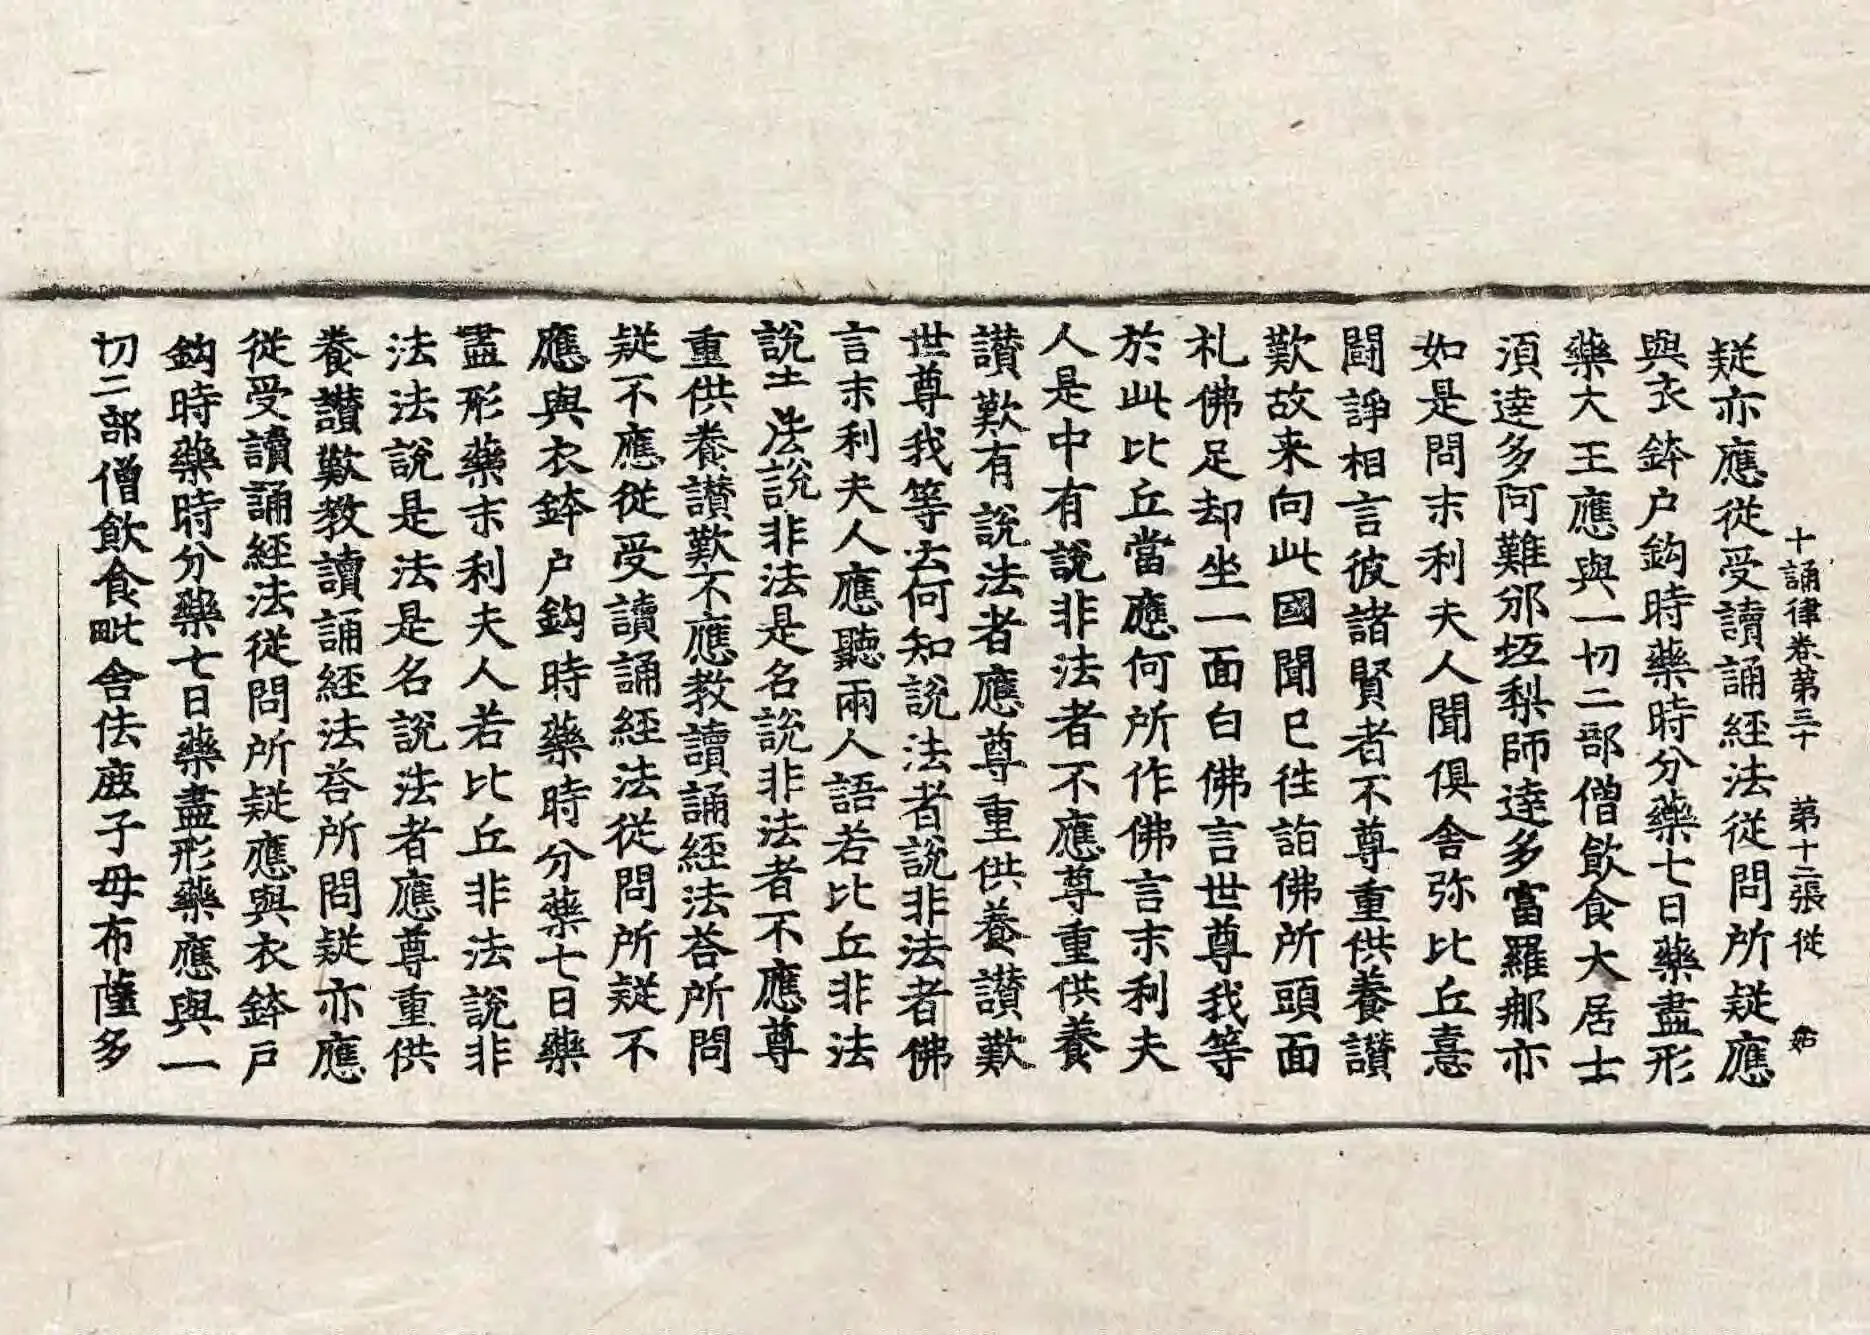 十誦律卷第三十　第十二張　従
疑亦應從受讀誦經法從問所疑應
與衣鉢户鈎時藥時分藥七日藥盡形
藥大王應與一切二部僧飲食大居士
湏達多阿難邠坻梨師達多富羅那亦
如是問末利夫人聞俱舍弥比丘憙
闘諍相言彼諸賢者不尊重供養讃
歎故来向此國聞已往詣佛所頭面
礼佛足却坐一面白佛言世尊我等
於此比丘當應何所作佛言末利夫
人是中有說非法者不應尊重供養
讃歎有說法者應尊重供養讃歎
世尊我等云何知說法者說非法者佛
言末利夫人應聽兩人語若比丘非法
說法法說非法是名說非法者不應尊
重供養讃歎不應教讀誦經法荅所問
疑不應從受讀誦經法從問所疑不
應與衣鉢户鈎時藥時分藥七日藥
盡形藥末利夫人若比丘非法說非
法法說是法是名說法者應尊重供
養讃歎教讀誦經法荅所問疑亦應
從受讀誦經法從問所疑應與衣鉢户
鈎時藥時分藥七日藥盡形藥應與一
切二部僧飲食毗舍佉鹿子母布薩多